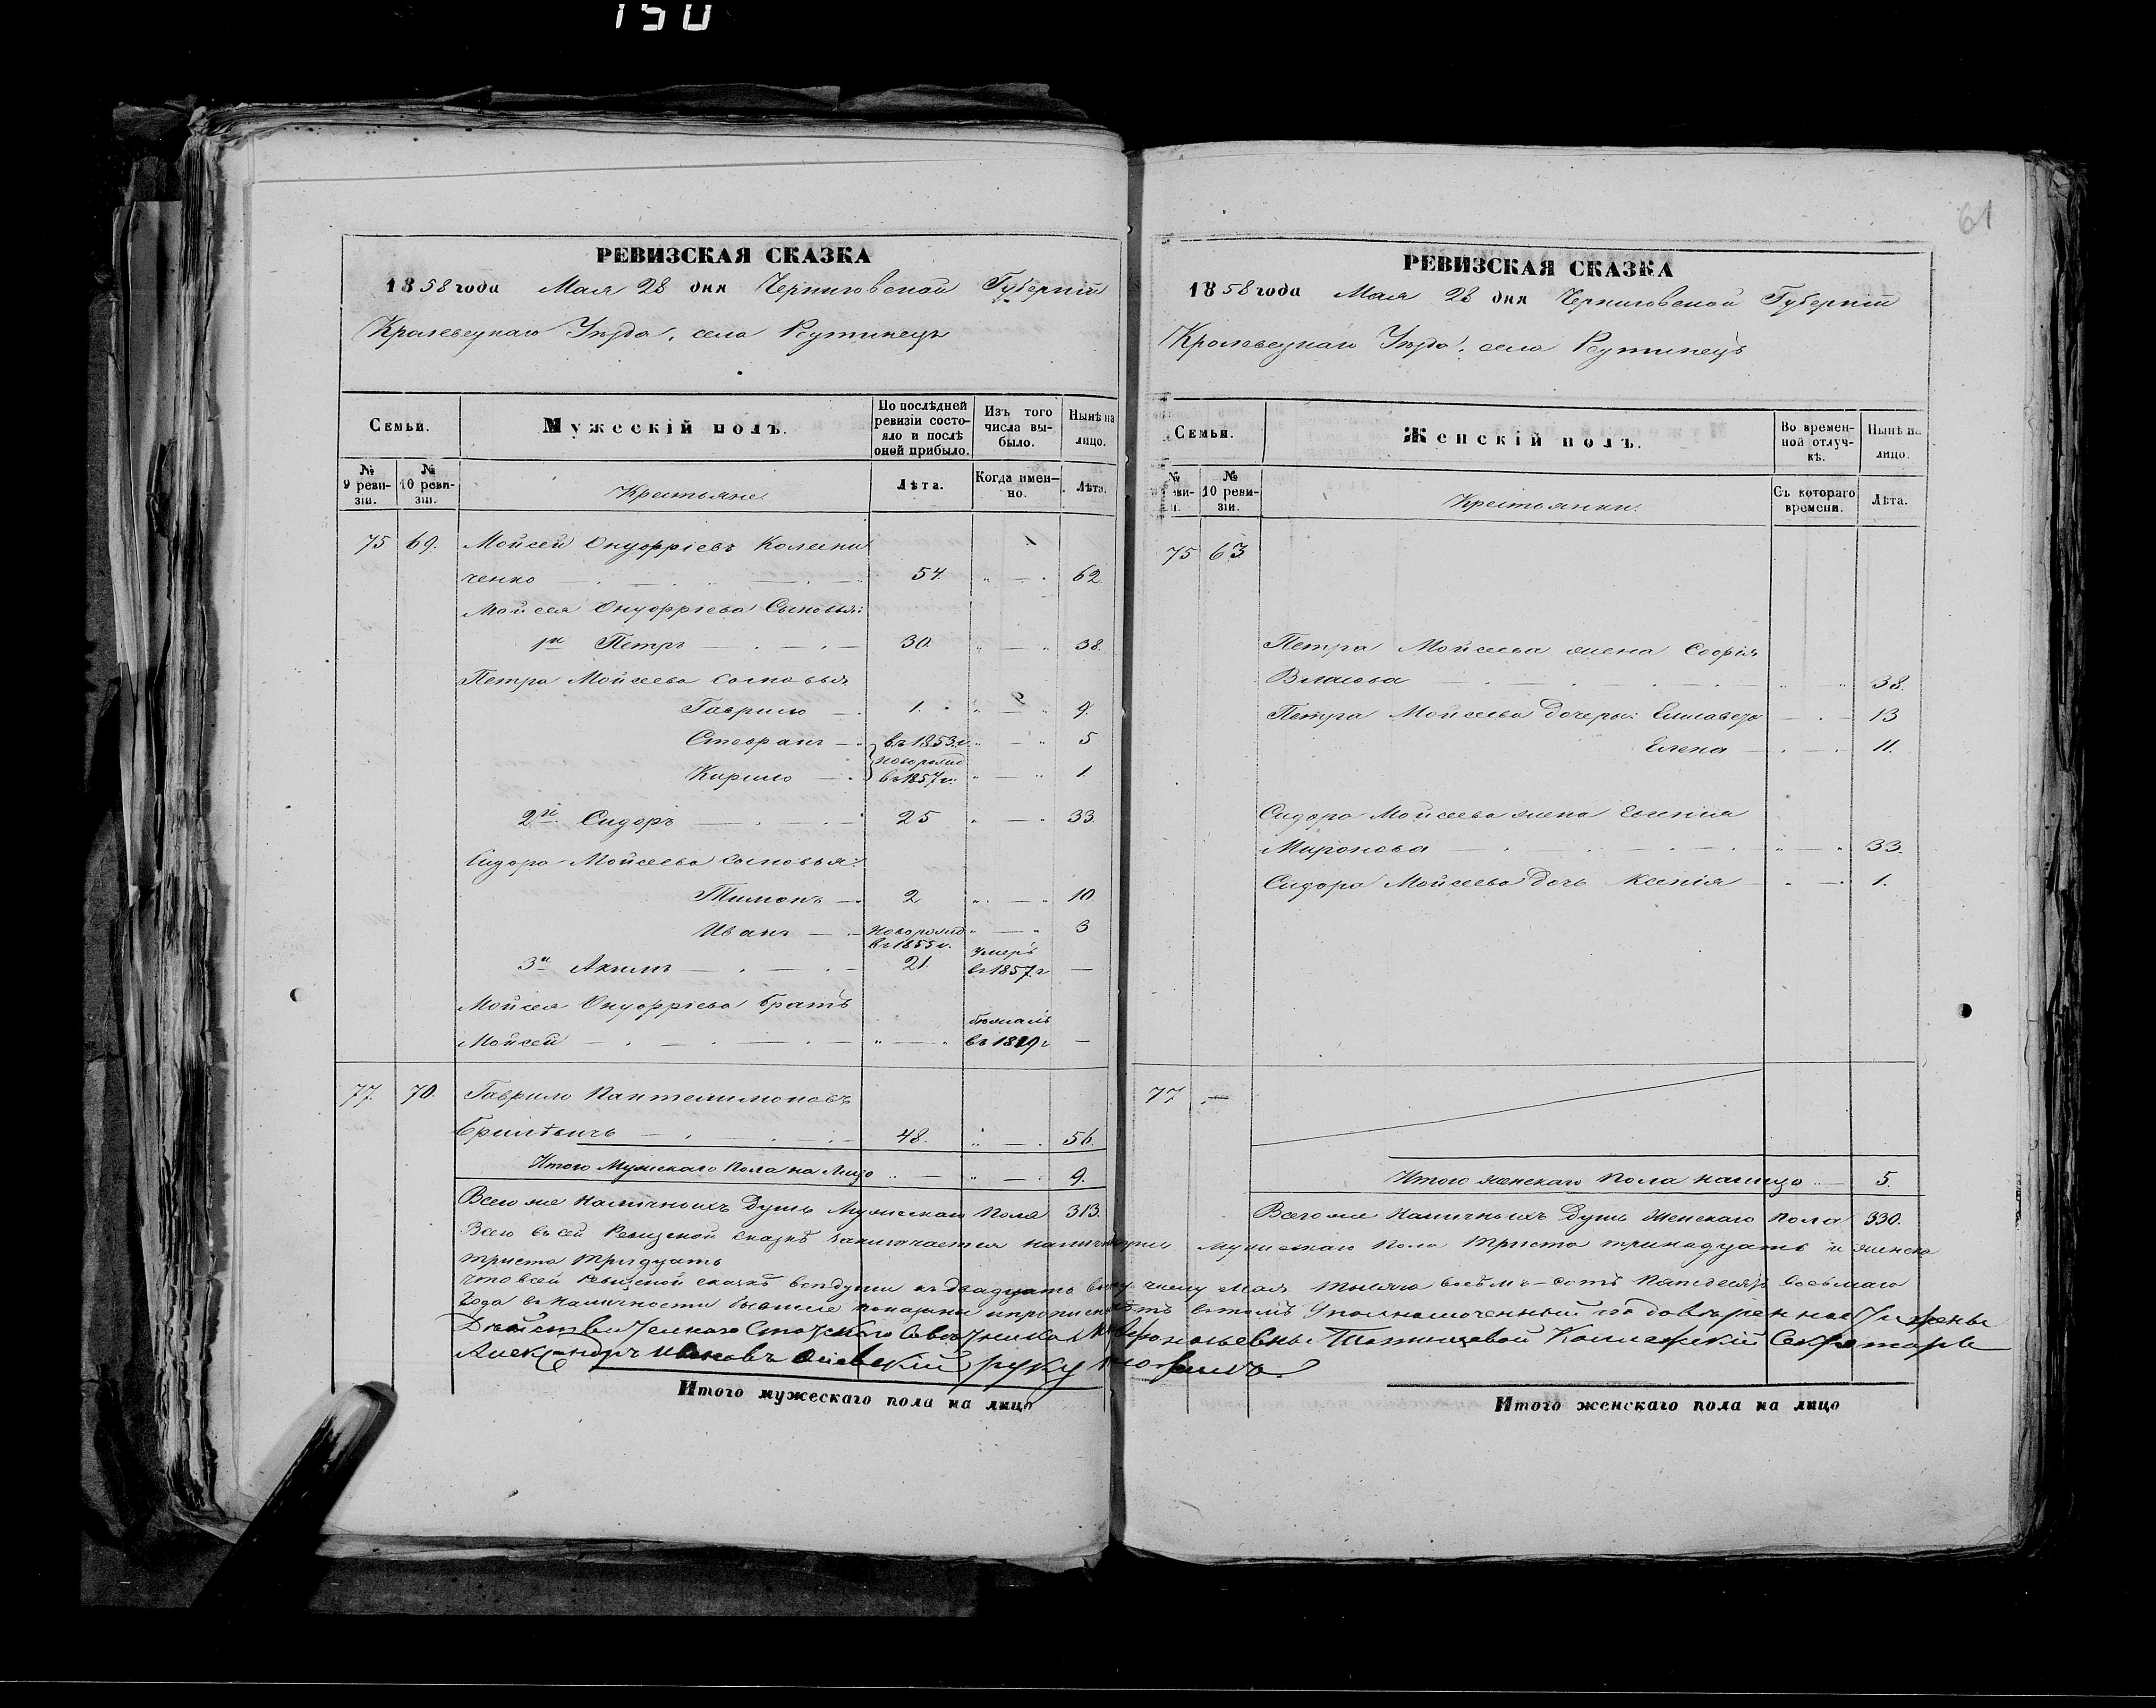 150
РЕВИЗСКАЯ СКАЗКА
1858 года Мая 28 дня Черниговской Губерніи
Кролевецкаго Уѣзда, села Рутинецъ
Семьи.
Мужескій полъ.
По послѣдней ревизіи состояло и послѣ оной прибыло.
Изъ того числа выбыло.
Нынѣ на лицо.
№ 9 ревизіи.
№ 10 ревизіи.
Крестьяне
Лѣта.
Когда именно.
Лѣта.
75 69. Мойсей Онуфріевъ Колесни
ченко 54. „ — „ 62
Мойсея Онуфріева Сыновья:
1й Петръ 30. „ — „ 38.
Петра Мойсеева сыновья
Гаврило 1. „ — „ 9.
Стефанъ въ 1853 г. „ — „ 5
Кирило новорожд въ 1857 г. „ — „ 1
2й Сидоръ 25 „ — „ 33.
Сидора Мойсеева сыновья:
Тимонъ 2 „ — „ 10
Иванъ новорожд въ 1855 г. „ — „ 3
3й Акимъ 21. умеръ въ 1857 г —
Мойсея Онуфріева братъ
Мойсей „ — „ бѣжалъ въ 1829 г —
77. 70. Гаврило Пантелимоновъ
48. „ — „ 56.
Итого Мужскаго Пола на Лицо „ — „ — „ 9.
Всего же Наличныхъ Душъ Мужескаго Пола 313.
61
РЕВИЗСКАЯ СКАЗКА
1858 года Мая 28 дня Черниговской Губерніи
Кролевецкаго Уѣзда, села Рутинецъ
Семьи.
Женскій полъ.
Во временной отлучкѣ.
Нынѣ на лицо.
№ 10 ревизіи.
Крестьянки.
Съ котораго времени.
Лѣта.
75 63
Петра Мойсеева жена Софія
Власова „ „ 38.
Петра Мойсеева дочеры: Елисавета 13
Елена 11.
Сидора Мойсеева жена Евгенія
Миронова „ — „ 33.
Сидора Мойсеева дочь Ксенія 1.
77 —
Итого женскаго Пола налицо 5.
Всего же Наличныхъ Душъ Женскаго Пола 330.
Всего въ сей Ревизской сказкѣ заключается Мужескаго Пола Триста тринадцать и женска
триста Тридцать
что въ сей Ревизской сказкѣ всѣ души къ двадцать числу Мая Тысяча восемь-сотъ Пятдесятъ восьмаго
Года въ наличности бывшіе показаны въ томъ Уполномоченный по довѣренности
Действительнаго Статскаго Совѣтника Секретарь
Александръ руку
Итого мужескаго пола на лицо
Итого женскаго пола на лицо